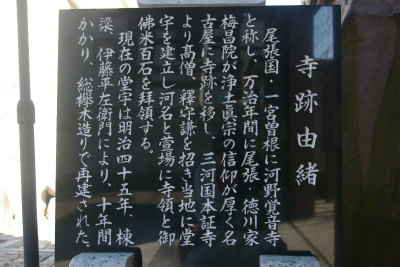 寺跡由緒
尾張国・一宮曽根に河野覚音寺
と称し、万治年間に尾張・徳川家
梅昌院が浄土真宗の信仰が厚く名
古屋に寺跡を移し、三河国本証寺
より高僧、釋守謙を招き当地に堂
宇を建立し河名と萱場に寺領と御
佛米百石を拝領する。
現在の堂宇は明治四十五年、棟
梁、伊藤平左衛門により、十年間
かかり、総欅木造りで再建された。